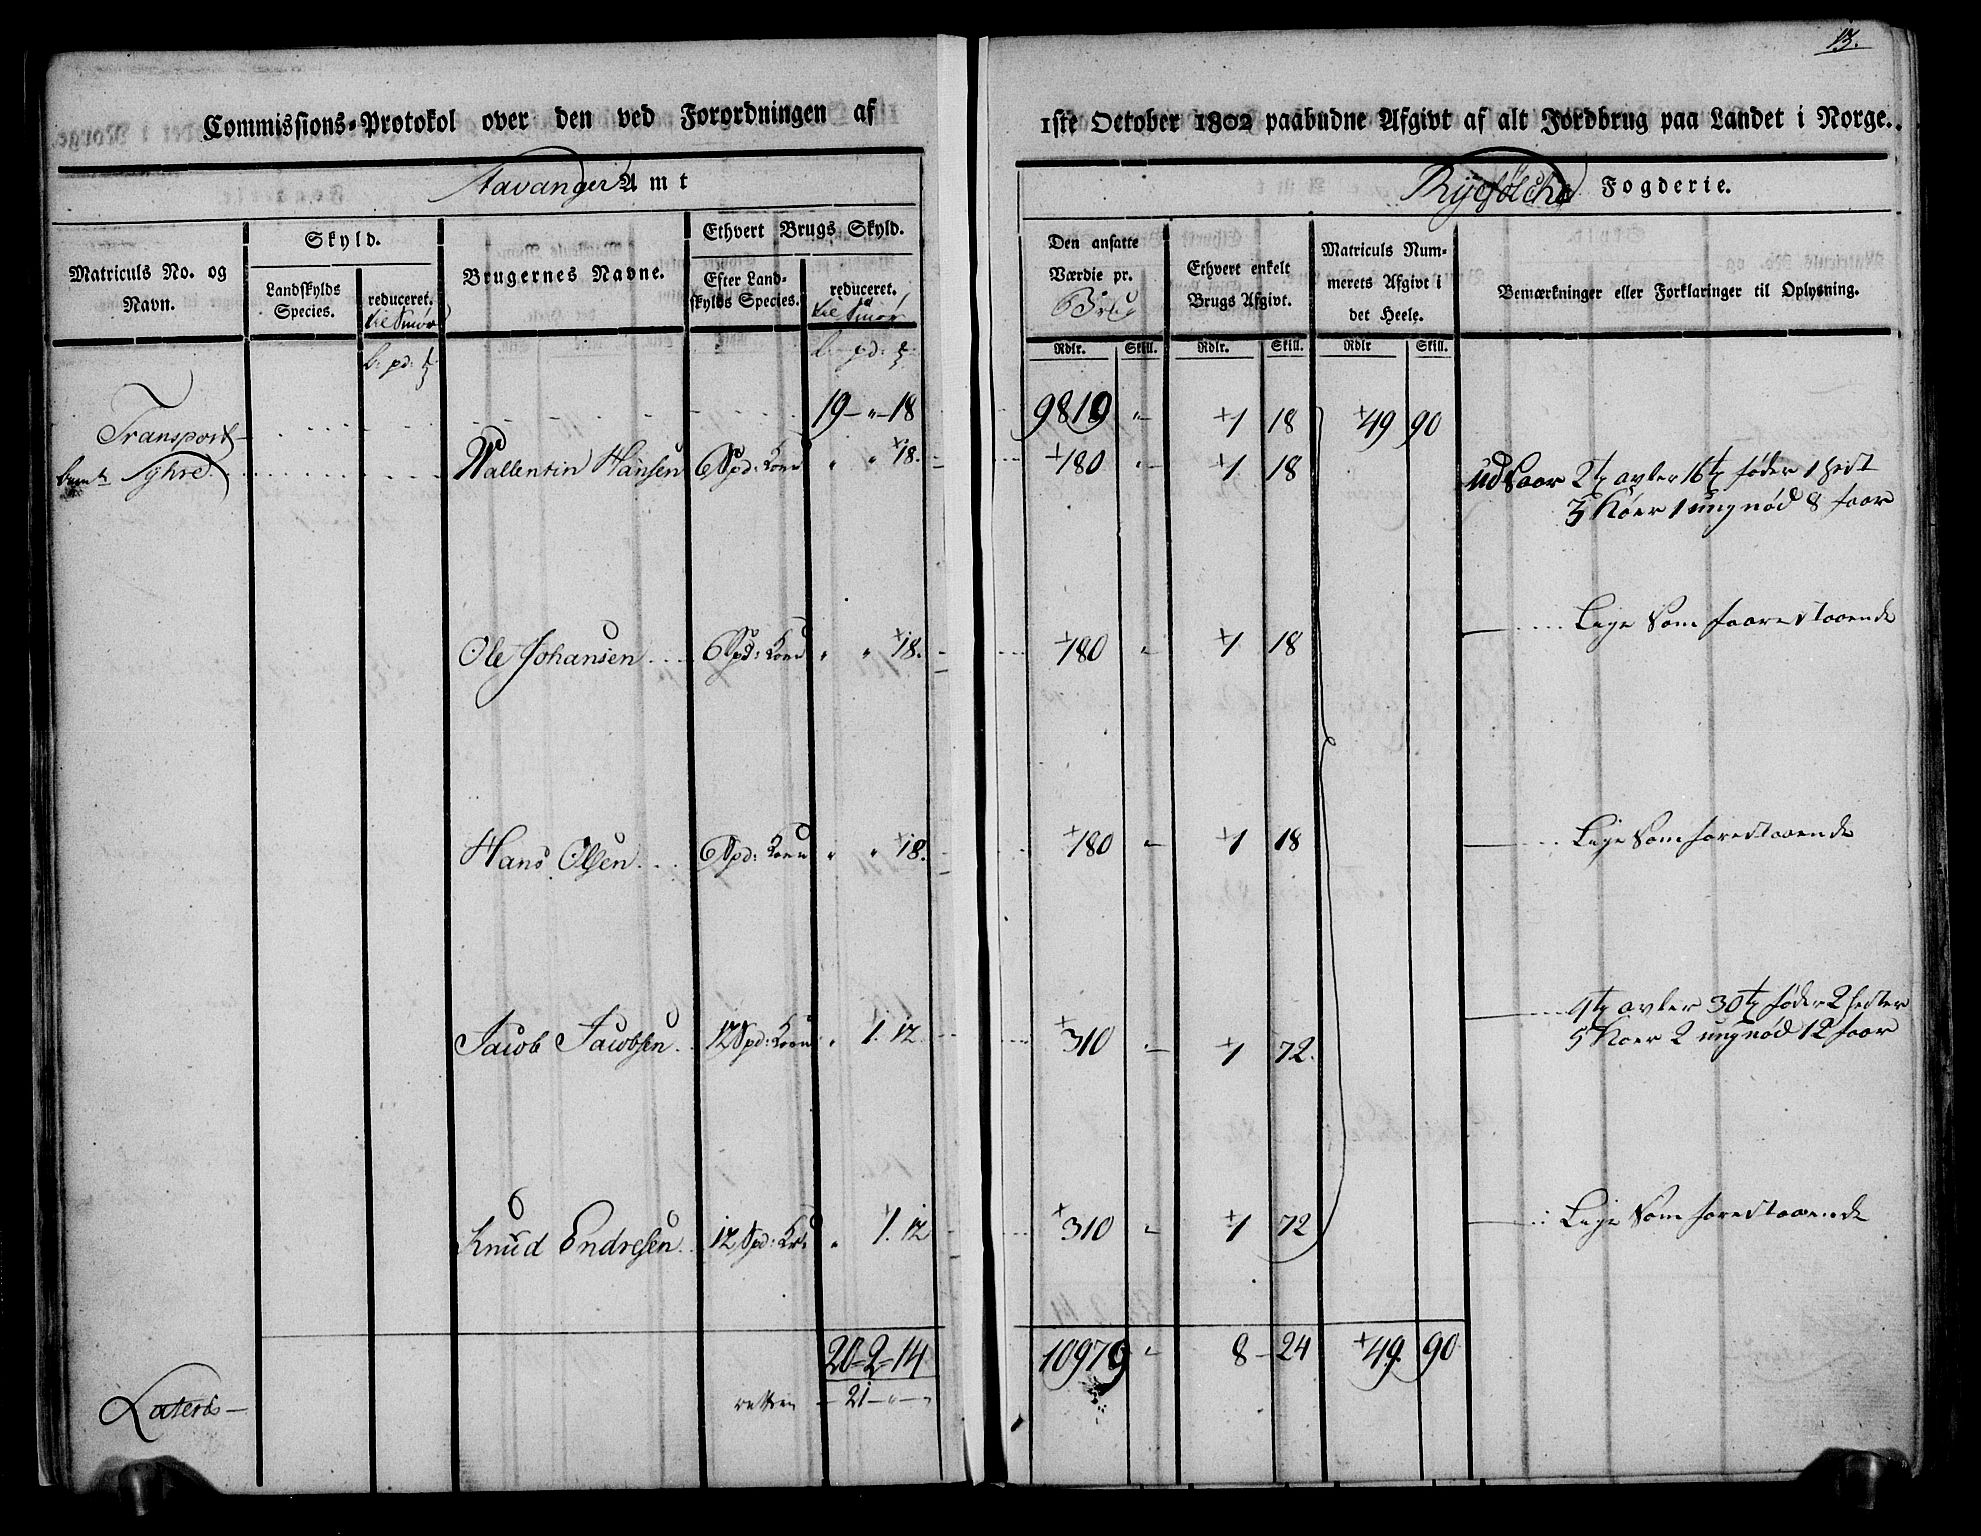 13.
Commissions-Protokol over den ved Forordningen af 1ste October 1802 paabudne Afgivt af alt Jordbrug paa Landet i Norge.
Stavanger Amt
Ryefølcke Fogderie.
Matriculs No. og Navn.
Skyld.
Landskylds Species.
reduceret. til Smør
Brugernes Navne.
Ethvert Brugs Skyld.
Efter Landskylds Species.
reduceret. til Smør
Den ansatte Værdie pr. Brug
Ethvert enkelt Brugs Afgivt.
Matriculs Nummerets Afgivt i det Heele.
Bemærkninger eller Forklaringer til Oplysning.
Rdlr. Skill. Rdlr. Skill. Rdlr Skill.
Transport 19 - " - 18 9819 " 1 18 49 90
Vallentin Hansen 6 Spd: Korn " " 18. 180 " 1 18
Udsaar 2 t avler 16 t føder 1 Hest
3 Køer 1 ungnød 8 faar
Ole Johansen 6 Spd: Korn " " 18. 180 " 1 18 Lige som foorestaaende
Hans Olsen 6 Spd: Korn " " 18. 180 " 1 18 Lige som forestaaende
Jacob Jacobsen 12 Spd: Korn " 1. 12 310 " 1 72.
4 t avler 30 t føder 2 Hester
5 Køer 2 ungnød 12 faar
Knud Endresen 12 Spd: Kr: " 1. 12 310 " 1 72 Lige som forestaaende
20 - 2 - 14 10979 " 8 - 24 49. 90
Lateris - 21 - " - "